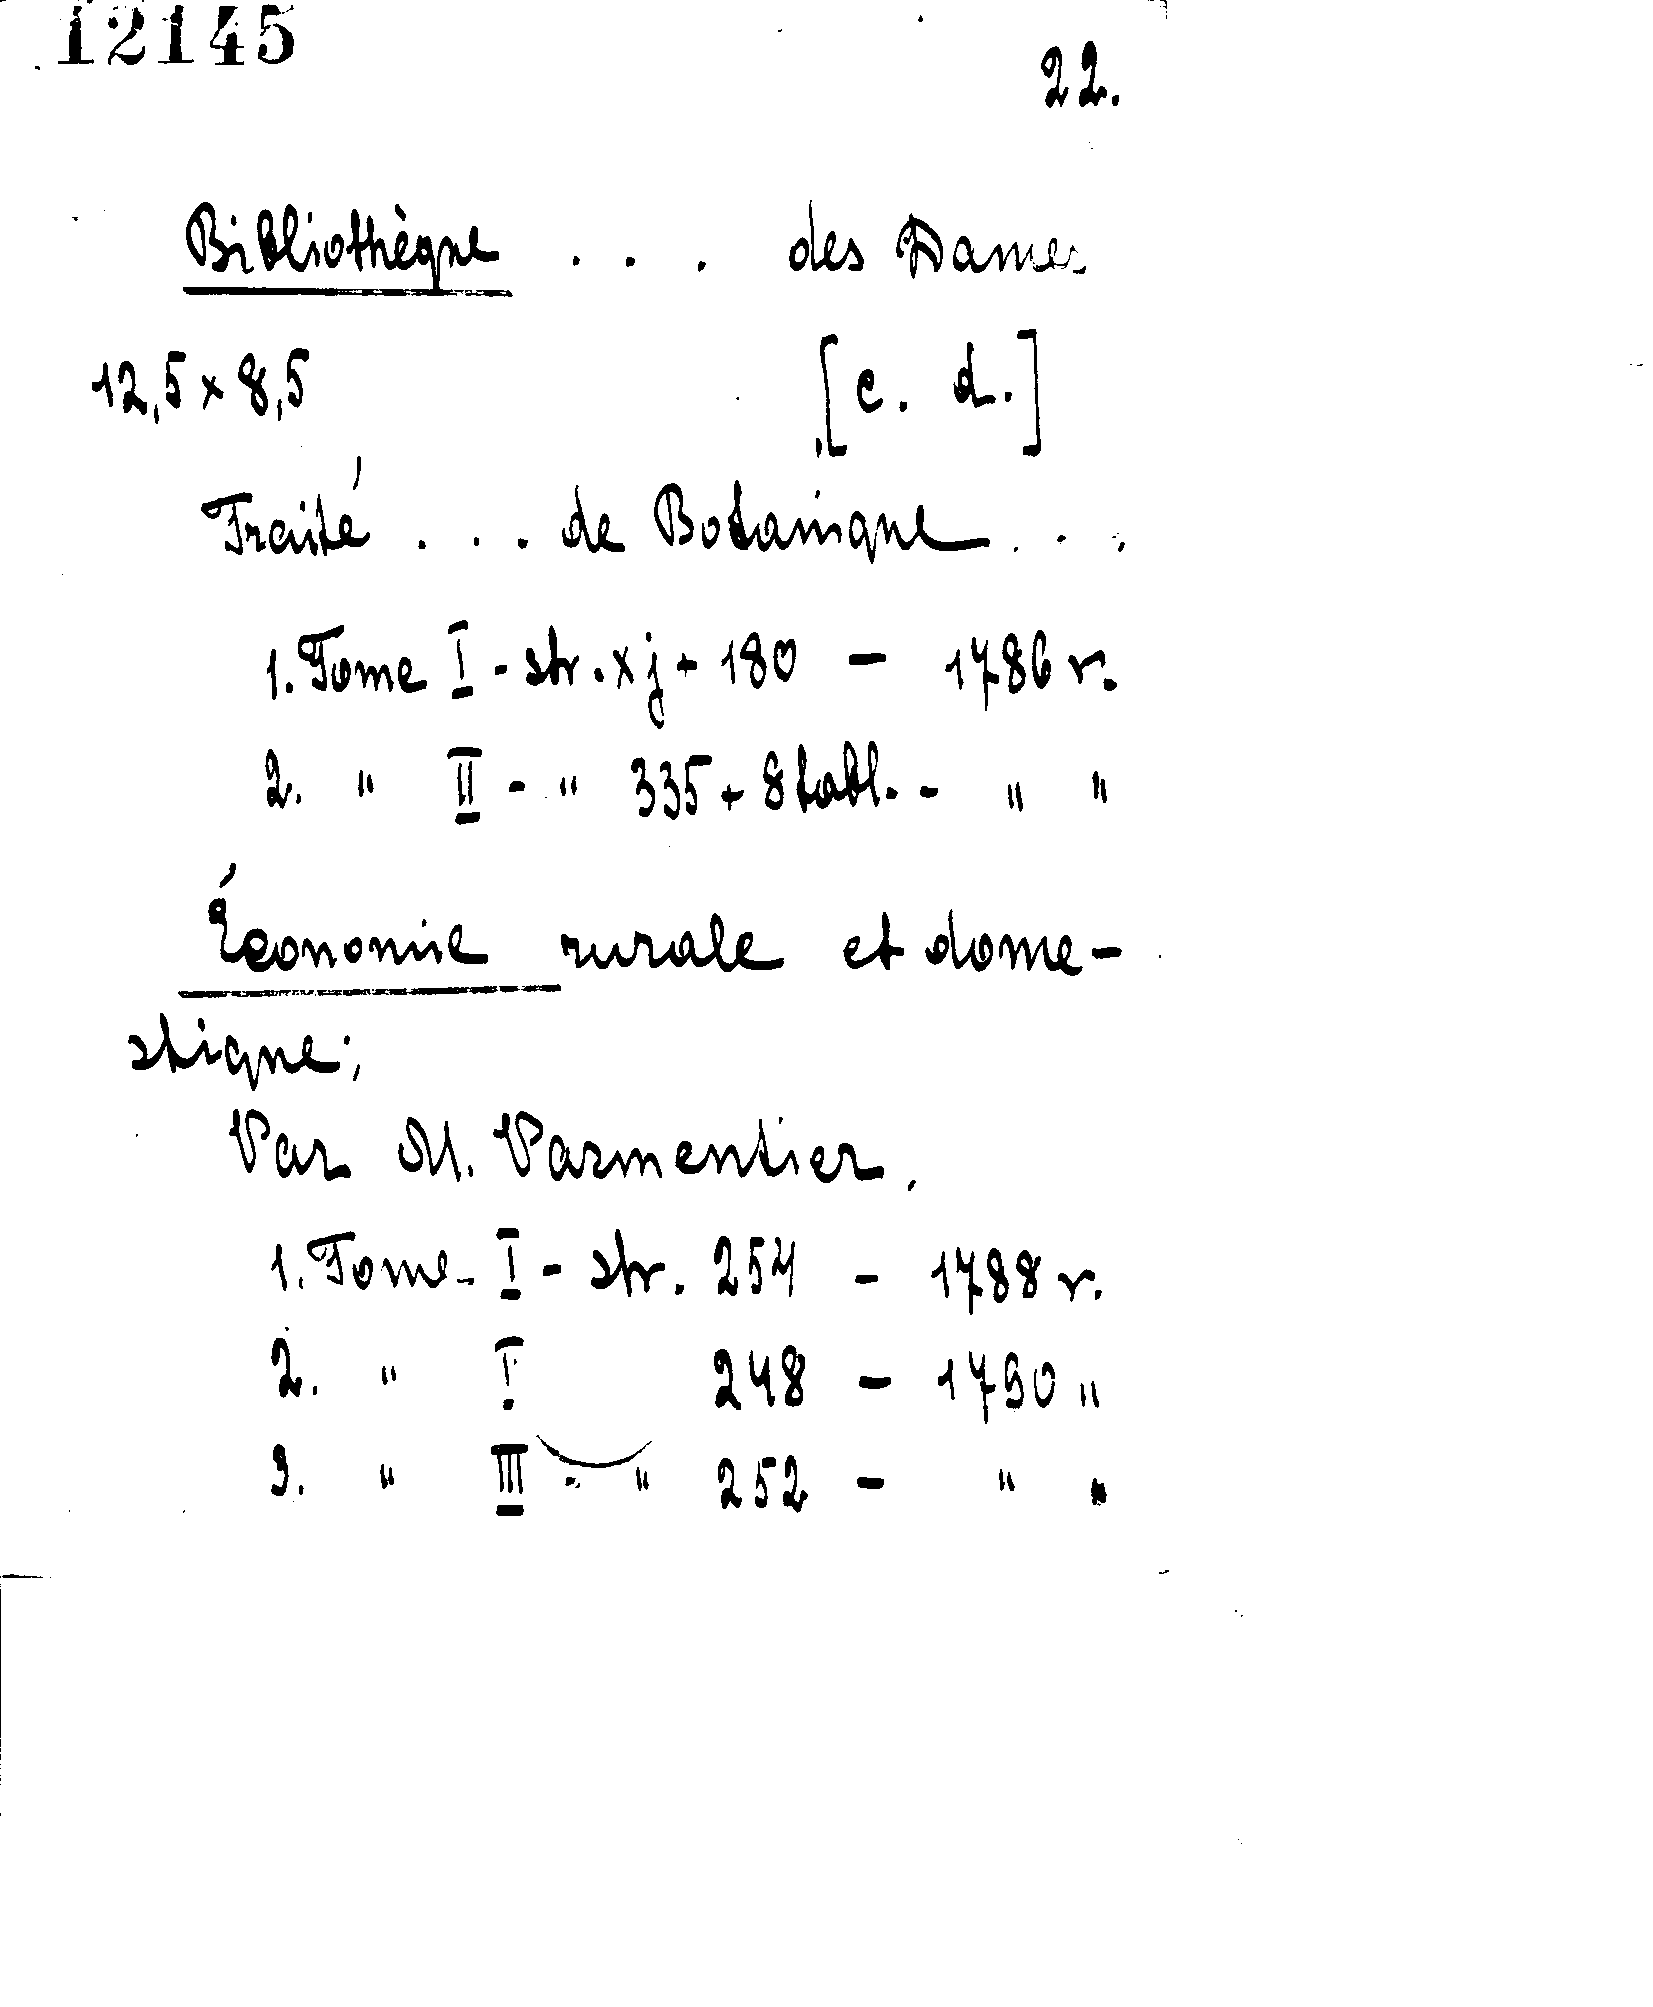 12145
22.
Bibliothèque . . . des Dames
12,5 x 8,5 [c. d.]
Traité . . . de Botanique . . .
1. Tome I - str. xj + 180 — 1786 r.
2. " II - " 335 + 8 tabl. - " "
Économie rurale et dome-
stique;
Par M. Parmentier.
1. Tome I - str. 254 — 1788 r.
2. " I 248 — 1790 "
3. " III - " 252 — " "